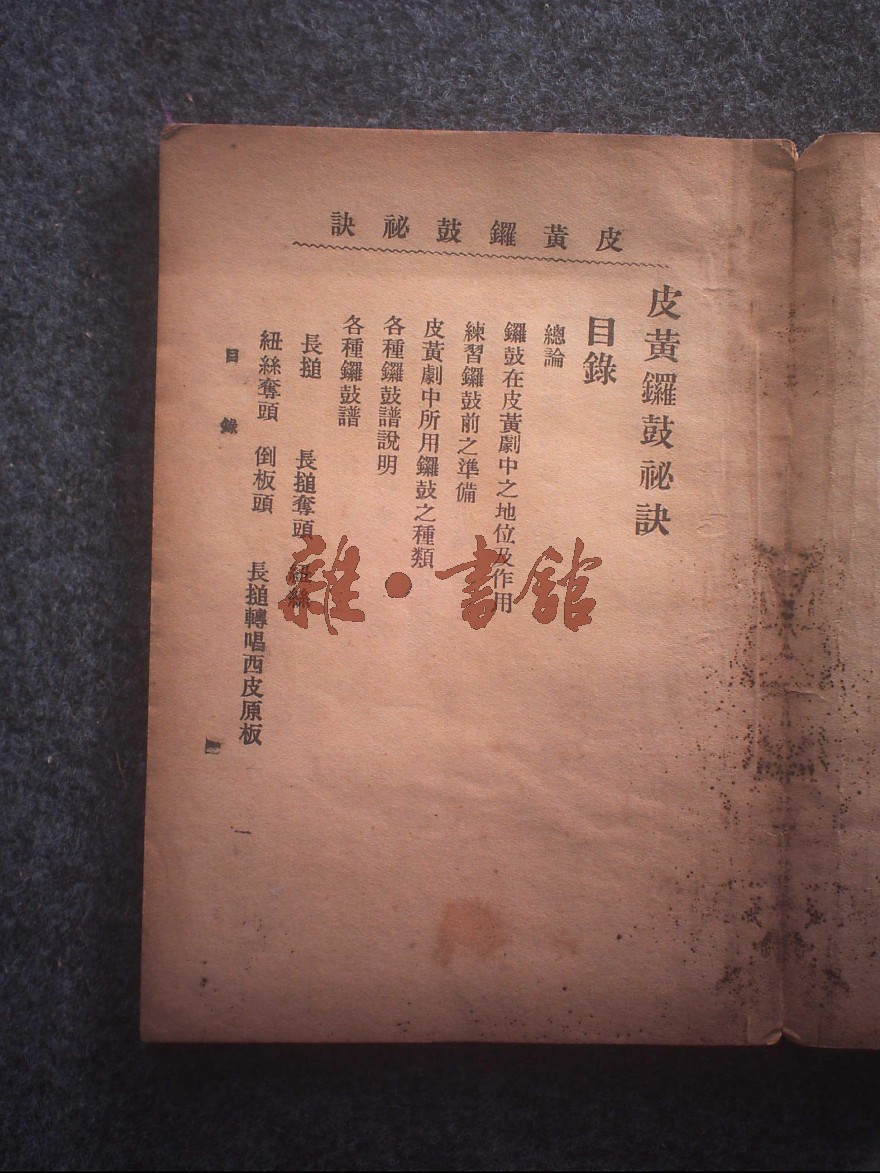 皮黃鑼鼓祕訣
皮黃鑼鼓祕訣
目錄
總論
鑼鼓在皮黃劇中之地位及作用
練習鑼鼓前之準備
皮黃劇中所用鑼鼓之種類
各種鑼鼓譜說明
各種鑼鼓譜
長搥 長搥奪頭 紐絲
紐絲奪頭 倒板頭 長搥轉唱西皮原板
目錄
一
雜·書館